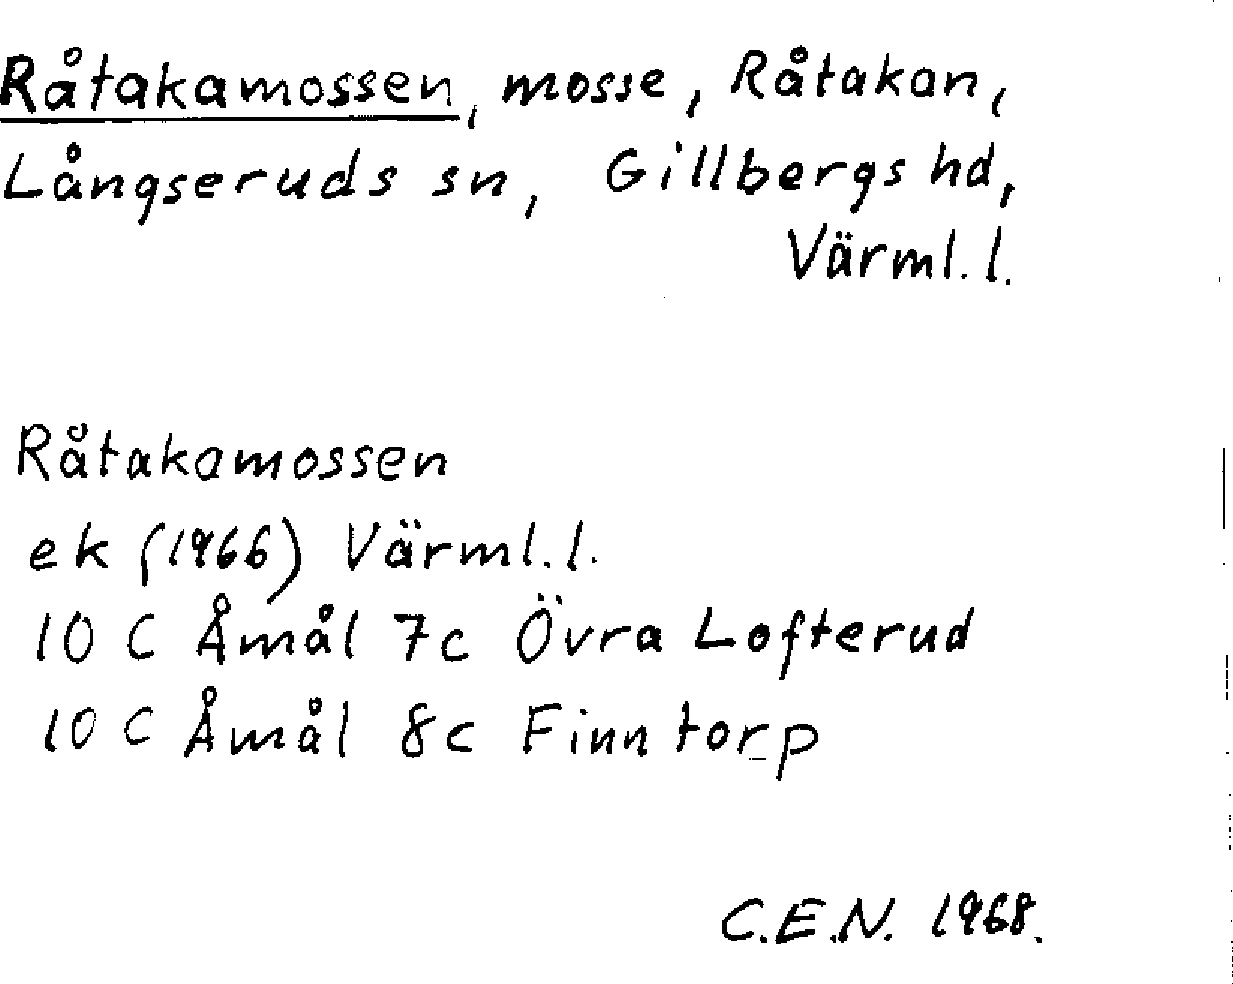 Råtakamossen, mosse, Råtakan,
Långseruds sn, Gillbergs hd,
Värml. l.
Råtakamossen
ek (1966) Värml. l.
10 C Åmål 7c Övra Lofterud
10 C Åmål 8c Finntorp
C.E.N. 1968.